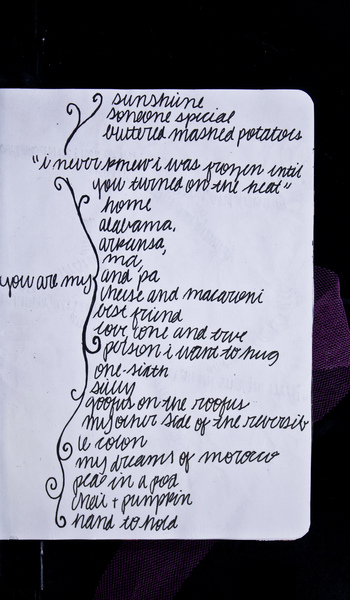 sunshine
someone spicial
buttered mashed potatoes
"i never knew i was frozen until
you turned on the heat"
home
alabama,
arkansa,
ma,
you are my and pa
cheese and macaroni
best friend
love, one and true
person i want to hug
one-sixth
silly
goofus on the roofus
my other side of the reversib
le colon
my dreams of morocco
peas in a pod
chai + pumpkin
hand to hold